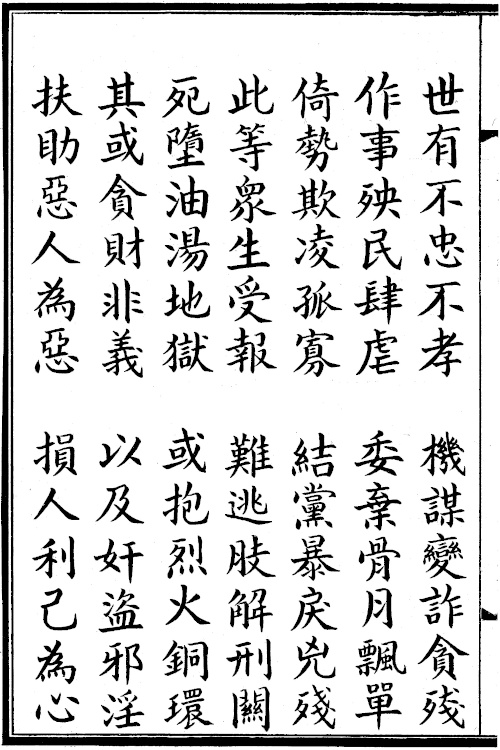 世有不忠不孝　機謀變詐貪殘
作事殃民肆虐　委棄骨月飄單
倚勢欺凌孤寡　結黨暴戾兇殘
此等眾生受報　難逃肢解刑關
死墮油湯地獄　或抱烈火銅環
其或貪財非義　以及奸盜邪淫
扶助惡人為惡　損人利己為心